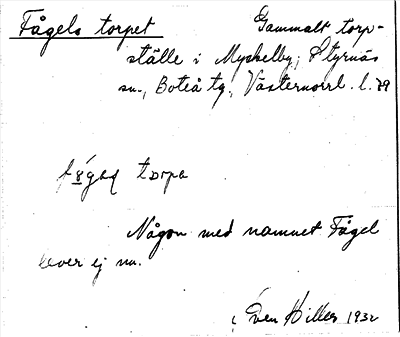 Fågels torpet
Gammalt torp-
ställe i Myckelby, Styrnäs
sn., Boteå tg., Västernorrl. l.
torpa
Någon med namnet Fågel
lever ej nu.
Even Hiller 1932